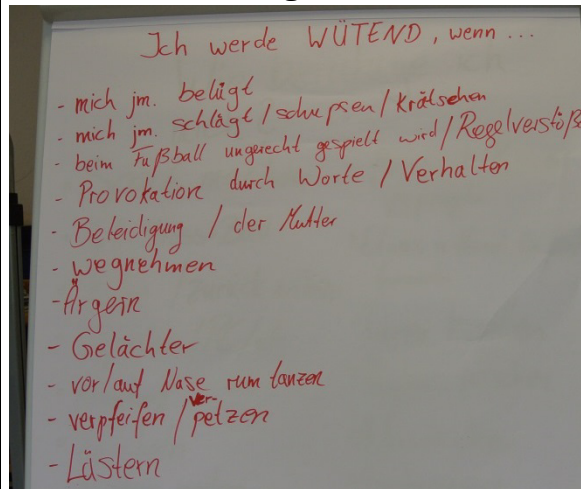 Ich werde WÜTEND, wenn ...
- mich jm. belügt
- mich jm. schlägt / schupsen / Krätschen
- beim Fußball ungerecht gespielt wird / Regelverstöße
- Provokation durch Worte / Verhalten
- Beleidigung / der Mutter
- wegnehmen
- Ärgern
- Gelächter
- vor/auf Nase rum tanzen
- verpfeifen / verpetzen
- Lästern